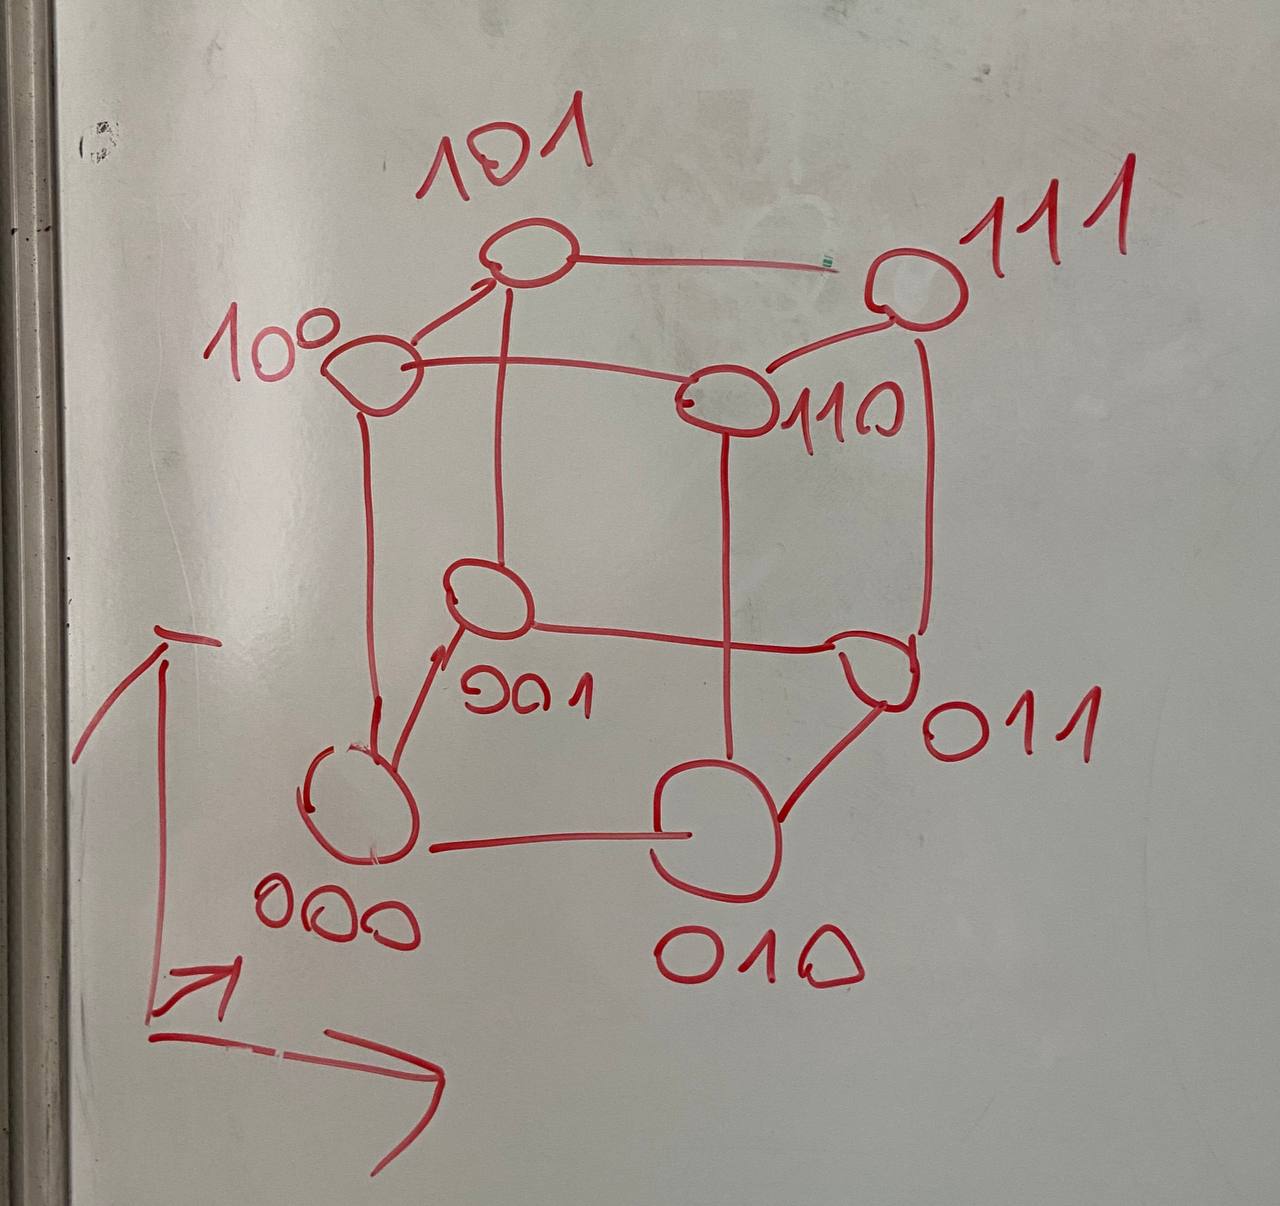 101
111
100
110
001
011
000
010